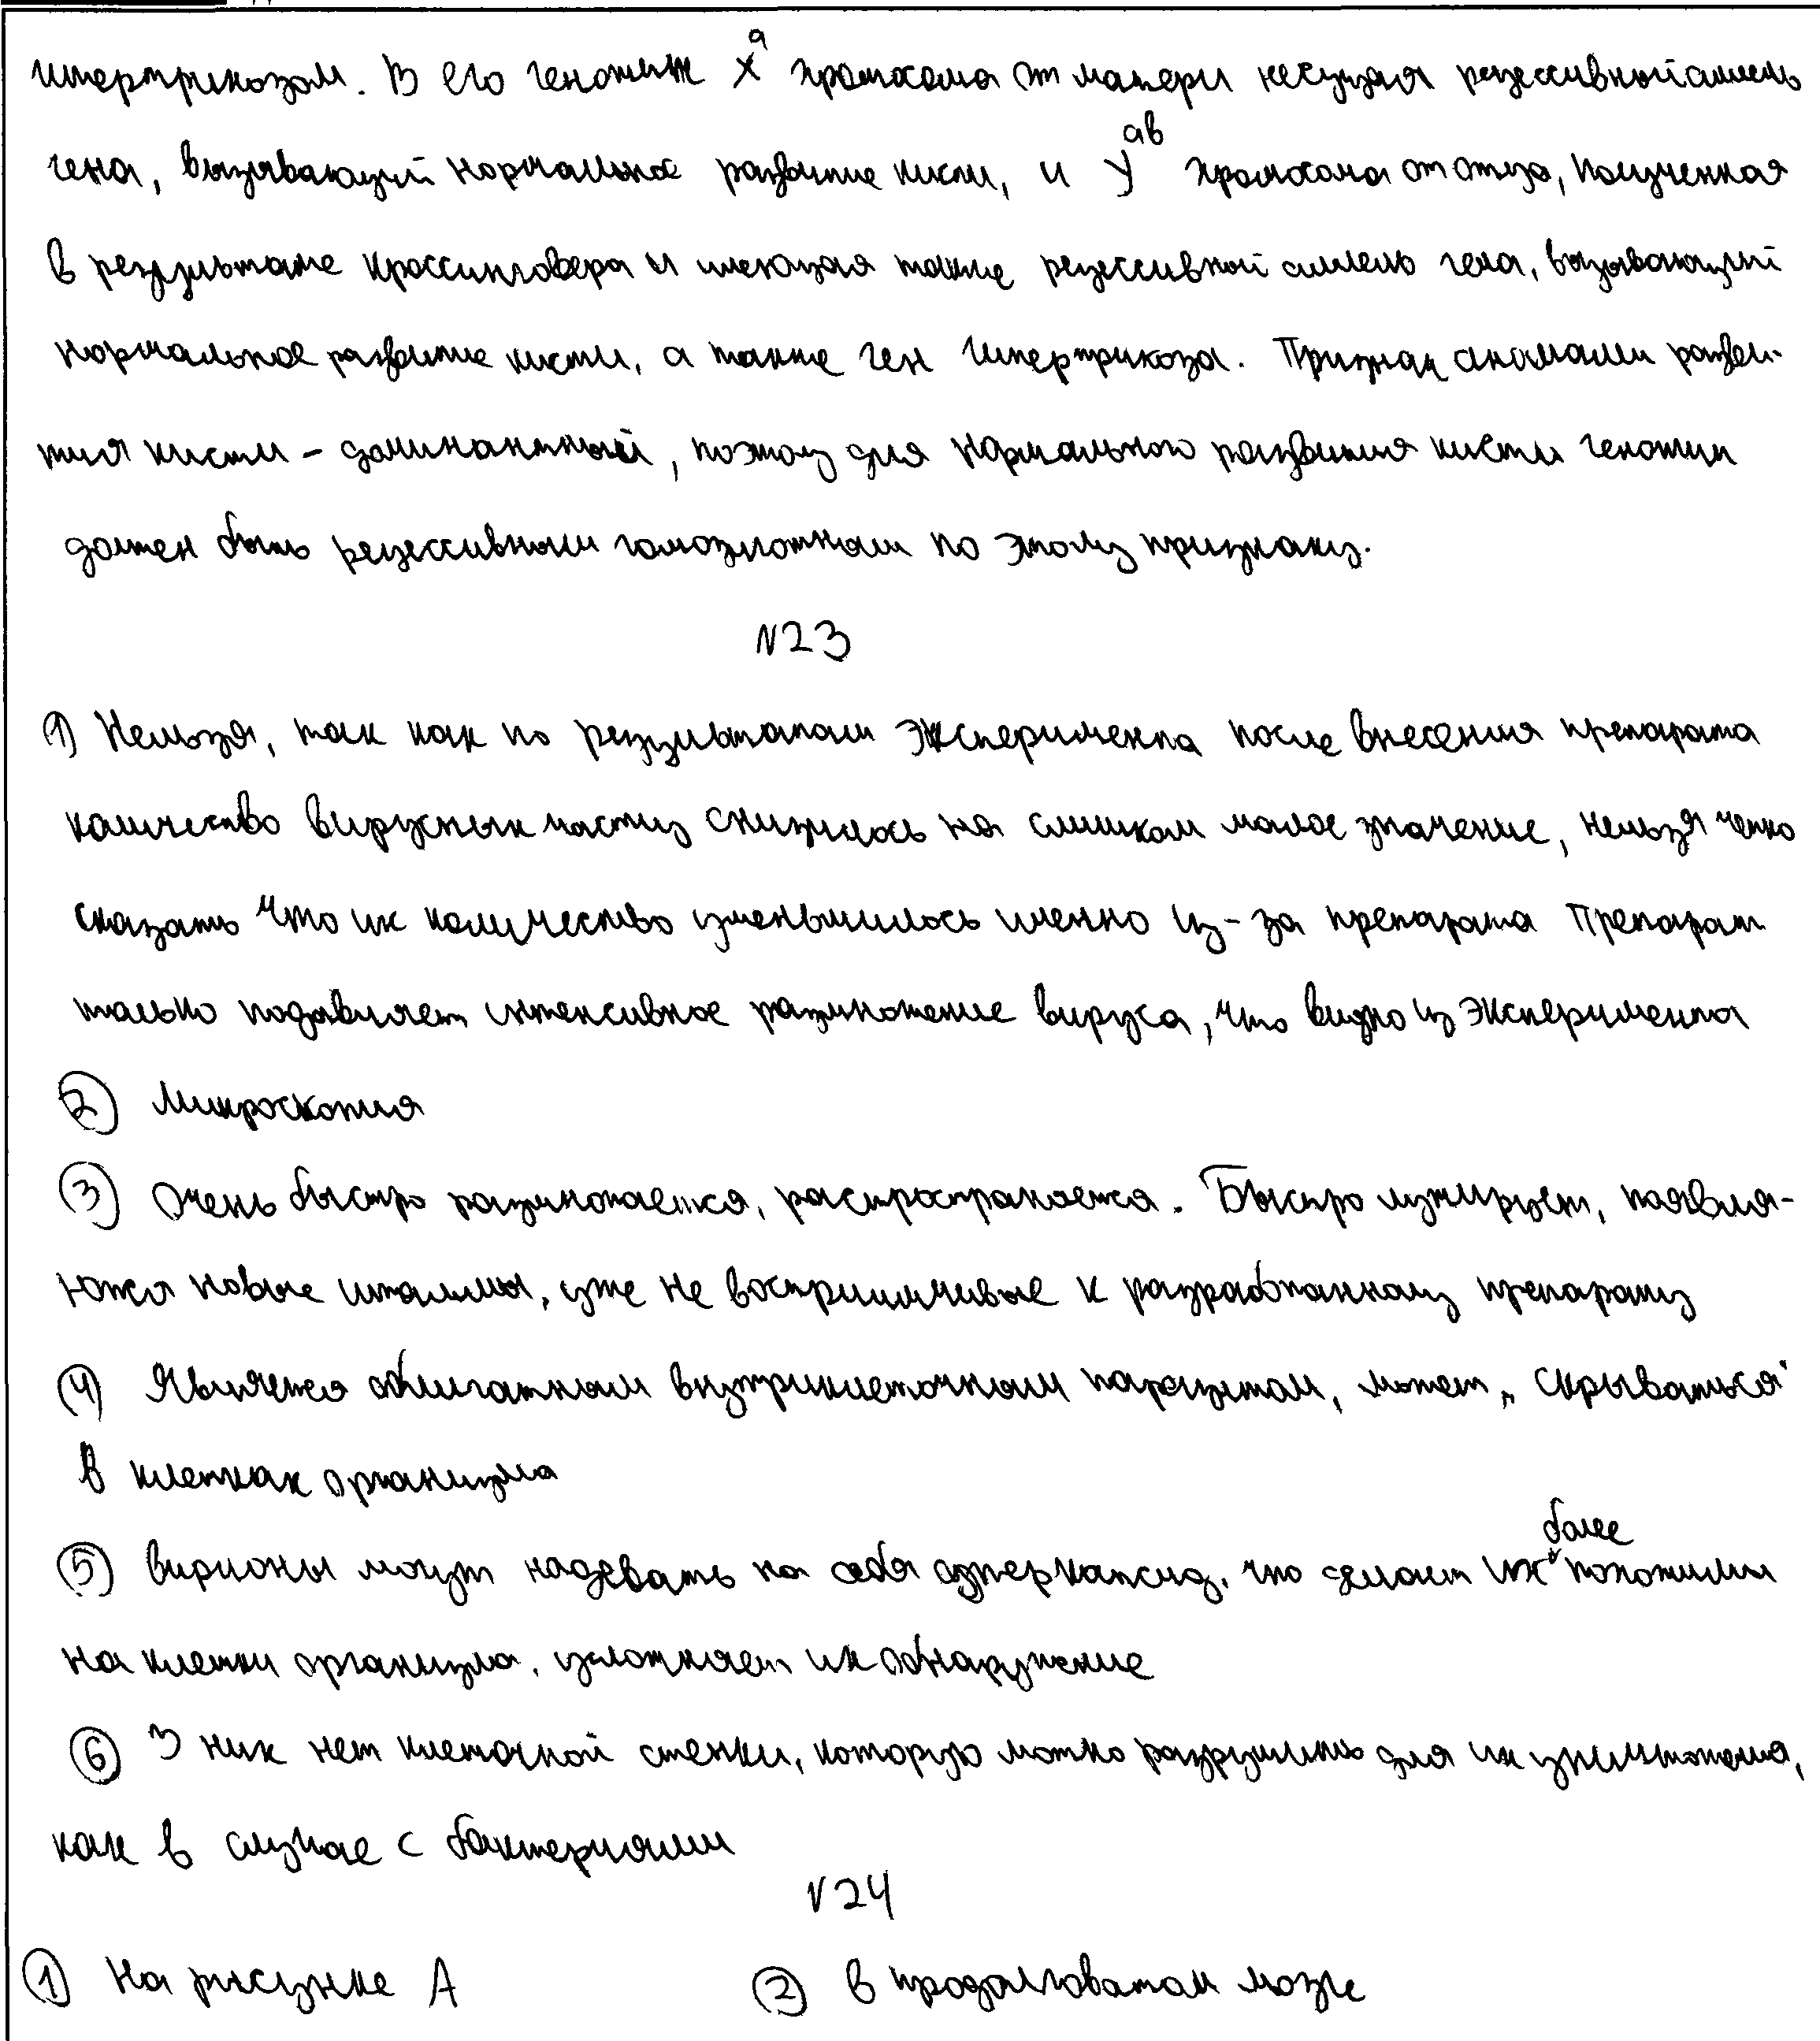 гипертрихозом. В его генотипе Xᵃ хромосома от матери несущая рецессивный аллель
гена, вызывающий нормальное развитие кисти, и Yᵃᵇ хромосома от отца, полученная
в результате кроссинговера и имеющая также рецессивный аллель гена, вызывающий
нормальное развитие кисти, а также ген гипертрихоза. Признак аномалии разви-
тия кисти - доминантный, поэтому для нормального развития кисти генотип
должен быть рецессивным гомозиготным по этому признаку.
N23
1) Нельзя, так как по результатам эксперимента после внесения препарата
количество вирусных частиц снизилось на слишком малое значение, нельзя четко
сказать что их количество уменьшилось именно из-за препарата Препарат
только подавляет интенсивное размножение вируса, что видно из эксперимента
2) Микроскопия
3) Очень быстро размножается, распространяется. Быстро мутирует, появля-
ются новые штаммы, уже не восприимчивые к разработанному препарату
4) Является облигатным внутриклеточным паразитом, может „скрываться"
в клетках организма
5) Вирионы могут надевать на себя суперкапсид, что делает их более похожими
на клетки организма, усложняет их обнаружение
6) У них нет клеточной стенки, которую можно разрушить для их уничтожения,
как в случае с бактериями
N24
1) На рисунке А 2) В продолговатом мозге